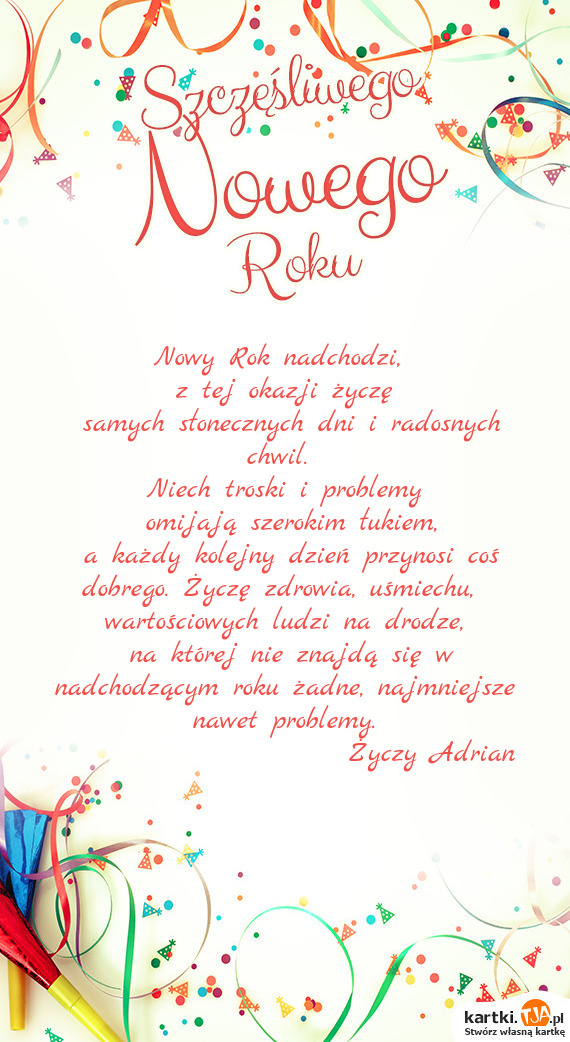 Szczęśliwego
Nowego
Roku
Nowy Rok nadchodzi,
z tej okazji życzę
samych słonecznych dni i radosnych
chwil.
Niech troski i problemy
omijają szerokim łukiem,
a każdy kolejny dzień przynosi coś
dobrego. Życzę zdrowia, uśmiechu,
wartościowych ludzi na drodze,
na której nie znajdą się w
nadchodzącym roku żadne, najmniejsze
nawet problemy.
Życzy Adrian
kartki.TJA.pl
Stwórz własną kartkę